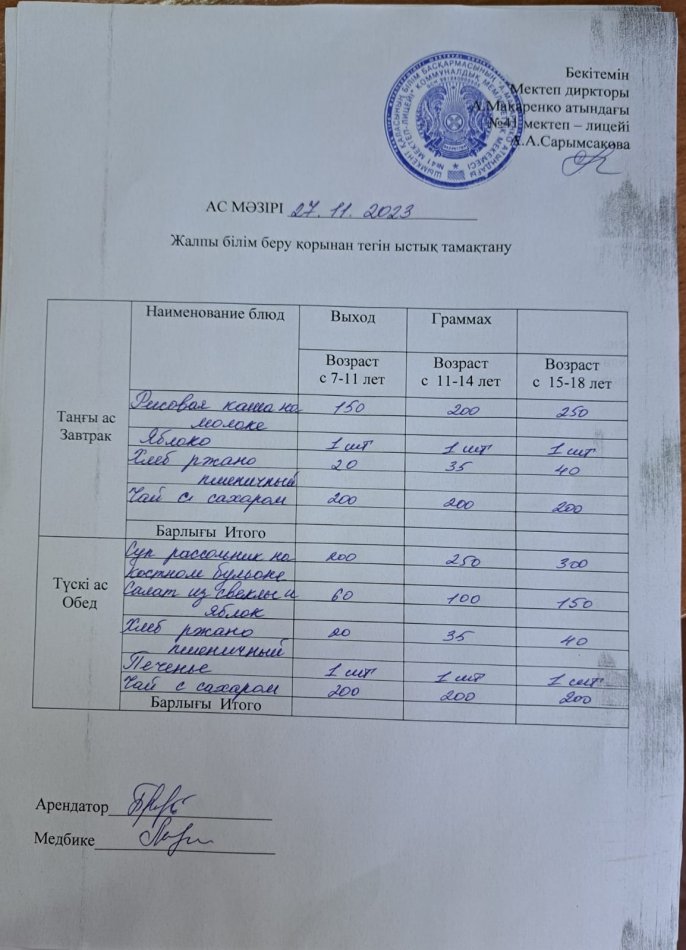 Бекітемін
Мектеп диркторы
А.Макаренко атындағы
№41 мектеп – лицейі
А.А.Сарымсакова
АС МӘЗІРІ 27. 11. 2023
Жалпы білім беру қорынан тегін ыстық тамақтану
Наименование блюд Выход Граммах
Возраст с 7-11 лет Возраст с 11-14 лет Возраст с 15-18 лет
Таңғы ас
Завтрак
Рисовая каша на 150 200 250
молоке
Яблоко 1 шт 1 шт 1 шт
Хлеб ржано 20 35 40
пшеничный
Чай с сахаром 200 200 200
Барлығы Итого
Түскі ас
Обед
Суп рассольник на 200 250 300
костном бульоне
Салат из свеклы и 60 100 150
яблок
Хлеб ржано 20 35 40
пшеничный
Печенье 1 шт 1 шт 1 шт
Чай с сахаром 200 200 200
Барлығы Итого
Арендатор
Медбике